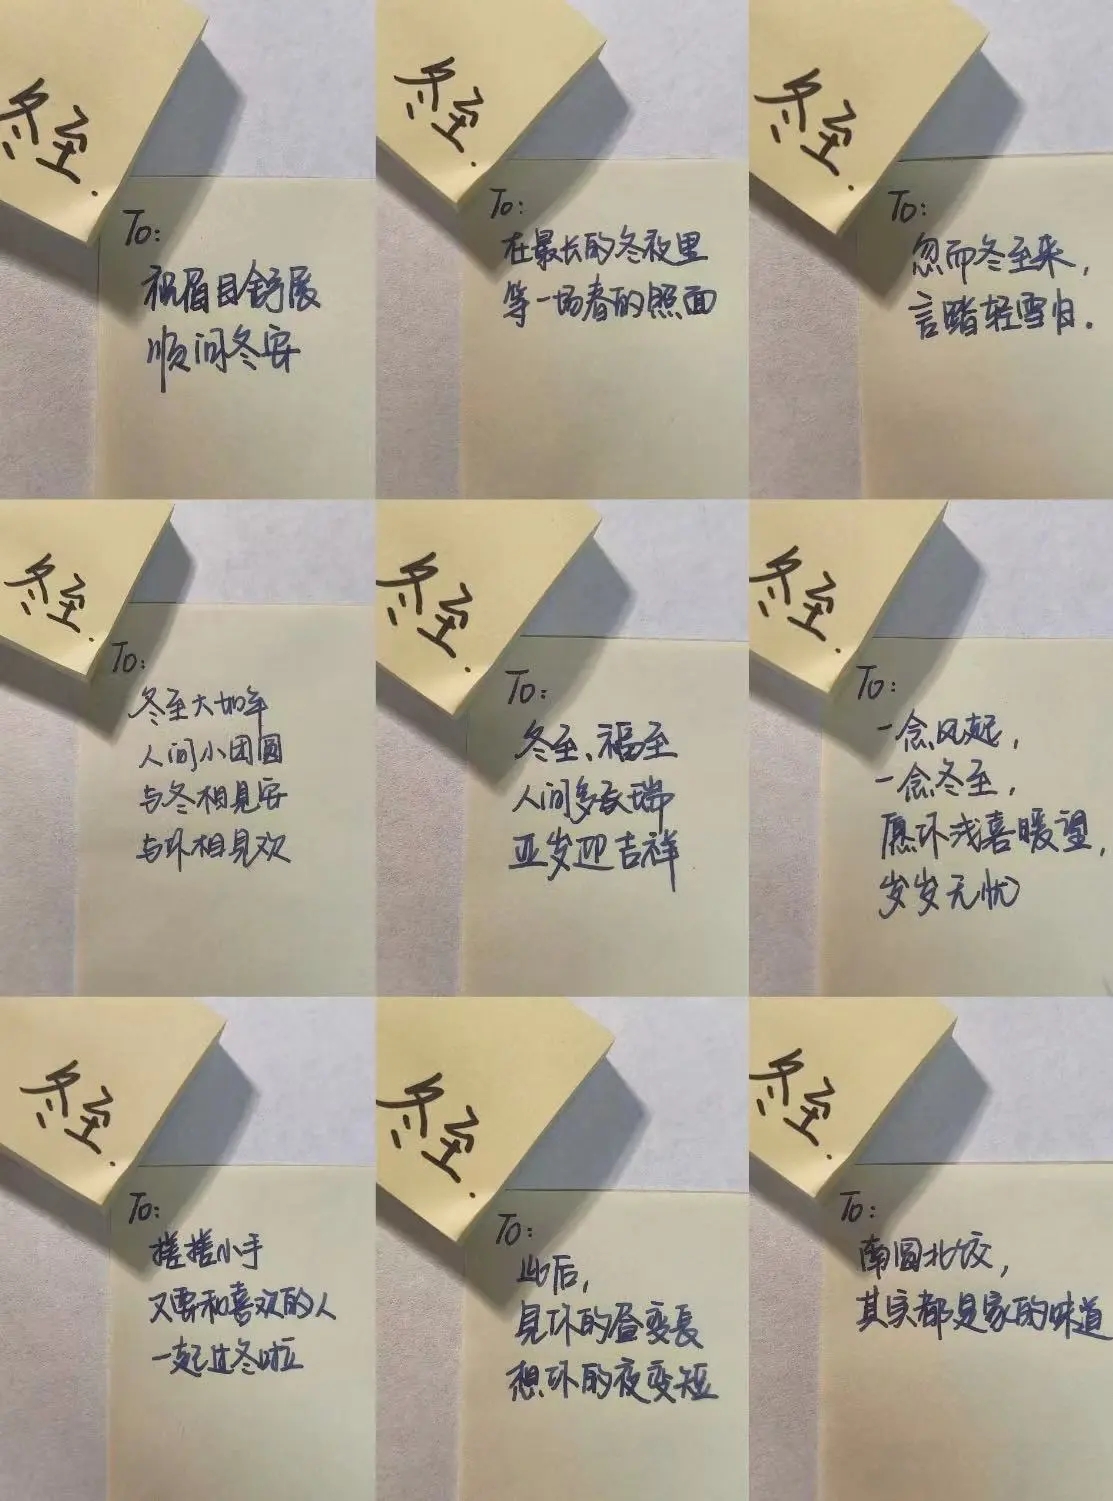 冬至.
To:
祝眉目舒展
顺问冬安
冬至.
To:
在最长的冬夜里
等一场春的照面
冬至.
To:
忽而冬至来，
言踏轻雪归.
冬至.
To:
冬至大如年
人间小团圆
与冬相見安
与你相見欢
冬至.
To:
冬至、福至
人间多瑞
亚岁迎吉祥
冬至.
To:
一念风起，
一念冬至，
愿你浅喜暖望，
岁岁无忧
冬至.
To:
搓搓小手
又要和喜欢的人
一起过冬啦
冬至.
To:
此后，
見你的昼变長
想你的夜变短
冬至.
To:
南圆北饺，
其实都是家的味道